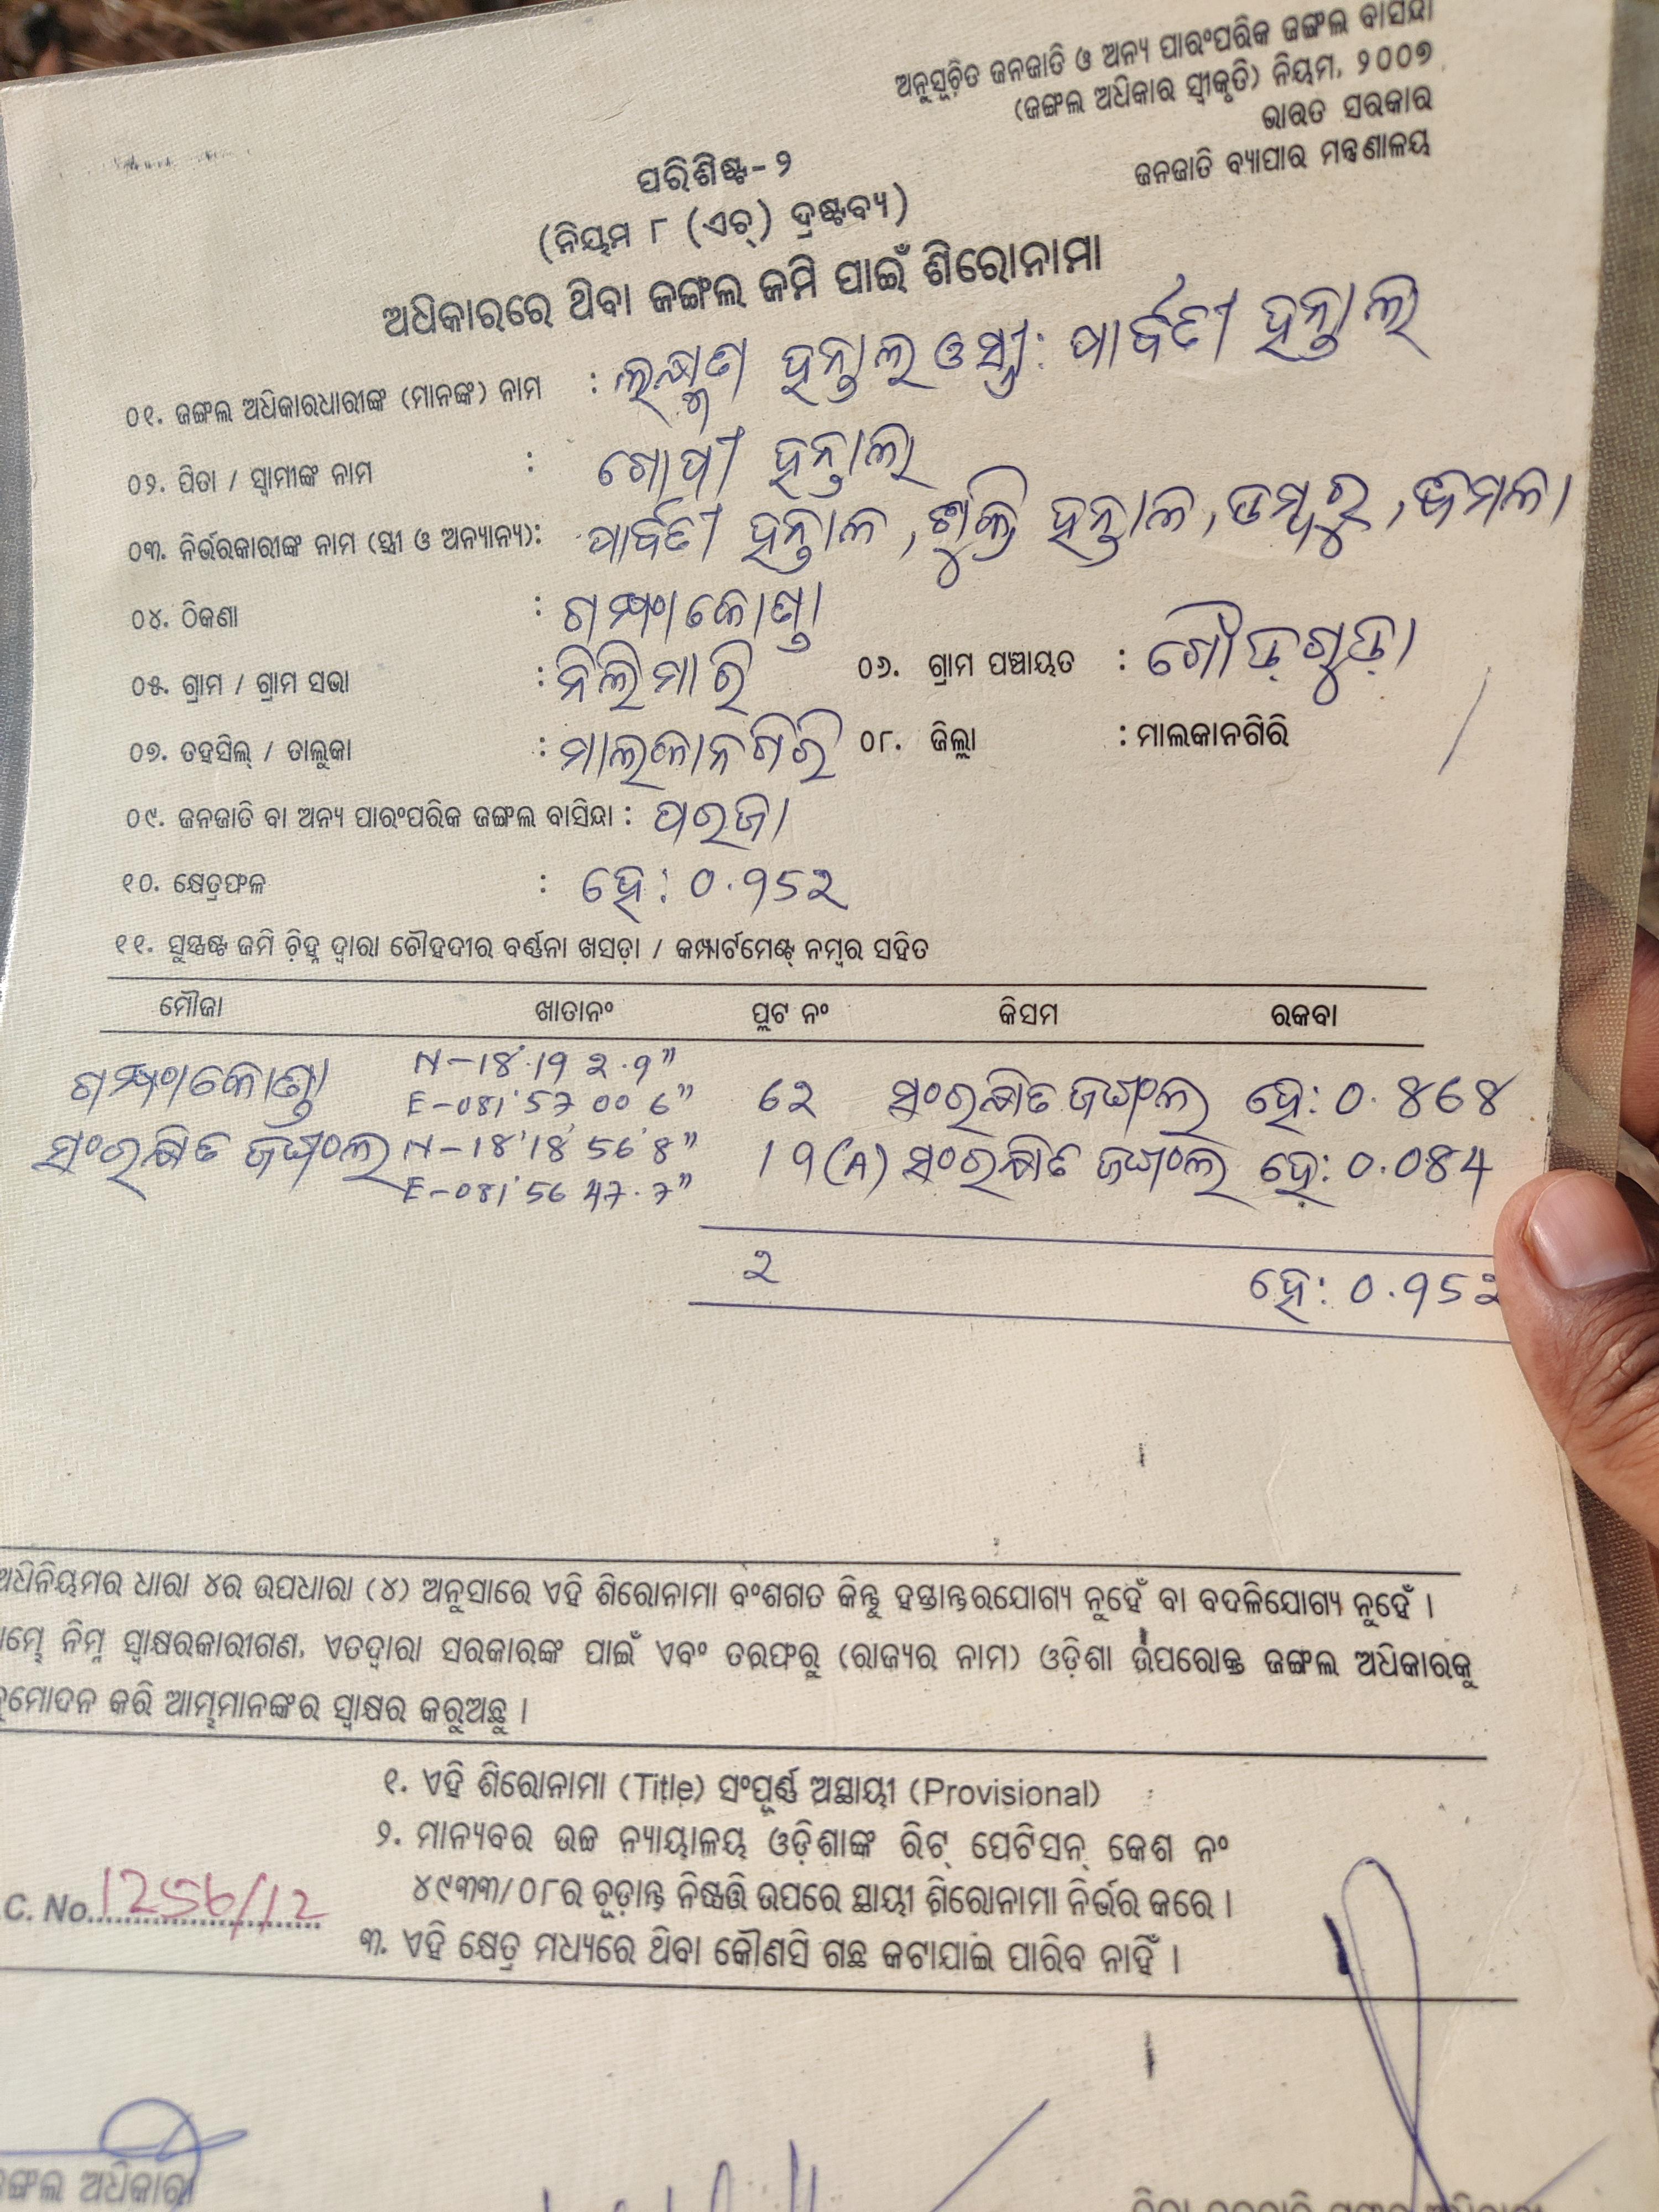 ଅନୁସୂଚିତ ଜନଜାତି ଓ ଅନ୍ୟ ପାରଂପରିକ ଜଙ୍ଗଲ ବାସିନ୍ଦା
(ଜଙ୍ଗଲ ଅଧିକାର ସ୍ୱୀକୃତି) ନିୟମ, ୨୦୦୭
ଭାରତ ସରକାର
ଜନଜାତି ବ୍ୟାପାର ମନ୍ତ୍ରଣାଳୟ
ପରିଶିଷ୍ଟ-୨
(ନିୟମ ୮ (ଏଚ୍) ଦ୍ରଷ୍ଟବ୍ୟ)
ଅଧିକାରରେ ଥିବା ଜଙ୍ଗଲ ଜମି ପାଇଁ ଶିରୋନାମା
୦୧. ଜଙ୍ଗଲ ଅଧିକାରଧାରୀଙ୍କ (ମାନଙ୍କ) ନାମ : ଲକ୍ଷ୍ମଣ ହନ୍ତାଲ ଓ ସ୍ତ୍ରୀ: ପାର୍ବତୀ ହନ୍ତାଲ
୦୨. ପିତା / ସ୍ୱାମୀଙ୍କ ନାମ : ଗୋପୀ ହନ୍ତାଲ
୦୩. ନିର୍ଭରକାରୀଙ୍କ ନାମ (ସ୍ତ୍ରୀ ଓ ଅନ୍ୟାନ୍ୟ): ପାର୍ବତୀ ହନ୍ତାଳ, ହନ୍ତାଳ, ଡମ୍ବରୁ,
୦୪. ଠିକଣା : ଗମ୍ଫାକୋଣ୍ଡା
୦୫. ଗ୍ରାମ / ଗ୍ରାମ ସଭା : ନିଲିମାରି ୦୬. ଗ୍ରାମ ପଞ୍ଚାୟତ : ଗୌଡ଼ଗୁଡ଼ା
୦୭. ତହସିଲ୍ / ତାଲୁକା : ମାଲକାନଗିରି ୦୮. ଜିଲ୍ଲା : ମାଲକାନଗିରି
୦୯. ଜନଜାତି ବା ଅନ୍ୟ ପାରଂପରିକ ଜଙ୍ଗଲ ବାସିନ୍ଦା : ପରଜା
୧୦. କ୍ଷେତ୍ରଫଳ : ହେ: ୦.୨୫୨
୧୧. ସୁସ୍ପଷ୍ଟ ଜମି ଚିହ୍ନ ଦ୍ୱାରା ଚୌହଦୀର ବର୍ଣ୍ଣନା ଖସଡ଼ା / କମ୍ପାର୍ଟମେଣ୍ଟ୍ ନମ୍ବର ସହିତ
ମୌଜା ଖାତାନଂ ପ୍ଲଟ ନଂ କିସମ ରକବା
N-18'.19 2.9"
E-081'57 00 6" ସଂରକ୍ଷିତ ଜଙ୍ଗଲ ହେ:
ସଂରକ୍ଷିତ ଜଙ୍ଗଲ N-18'18 56 8" ସଂରକ୍ଷିତ ଜଙ୍ଗଲ ହେ:
E-081'56 47.7"
୨ ହେ:
ଅଧିନିୟମର ଧାରା ୪ର ଉପଧାରା (୪) ଅନୁସାରେ ଏହି ଶିରୋନାମା ବଂଶଗତ କିନ୍ତୁ ହସ୍ତାନ୍ତରଯୋଗ୍ୟ ନୁହେଁ ବା ବଦଳିଯୋଗ୍ୟ ନୁହେଁ ।
ନିମ୍ନ ସ୍ୱାକ୍ଷରକାରୀଗଣ, ଏତଦ୍ୱାରା ସରକାରଙ୍କ ପାଇଁ ଏବଂ ତରଫରୁ (ରାଜ୍ୟର ନାମ) ଓଡ଼ିଶା ଉପରୋକ୍ତ ଜଙ୍ଗଲ ଅଧିକାରକୁ
କରି ଆମ୍ଭମାନଙ୍କର ସ୍ୱାକ୍ଷର କରୁଅଛୁ ।
୧. ଏହି ଶିରୋନାମା (Title) ସଂପୂର୍ଣ୍ଣ ଅସ୍ଥାୟୀ (Provisional)
୨. ମାନ୍ୟବର ଉଚ୍ଚ ନ୍ୟାୟାଳୟ ଓଡ଼ିଶାଙ୍କ ରିଟ୍ ପେଟିସନ୍ କେଶ ନଂ
୪୯୩୩/୦୮ର ଚୂଡ଼ାନ୍ତ ନିଷ୍ପତ୍ତି ଉପରେ ସ୍ଥାୟୀ ଶିରୋନାମା ନିର୍ଭର କରେ ।
C. No. 1256/12
୩. ଏହି କ୍ଷେତ୍ର ମଧ୍ୟରେ ଥିବା କୌଣସି ଗଛ କଟାଯାଇ ପାରିବ ନାହିଁ ।